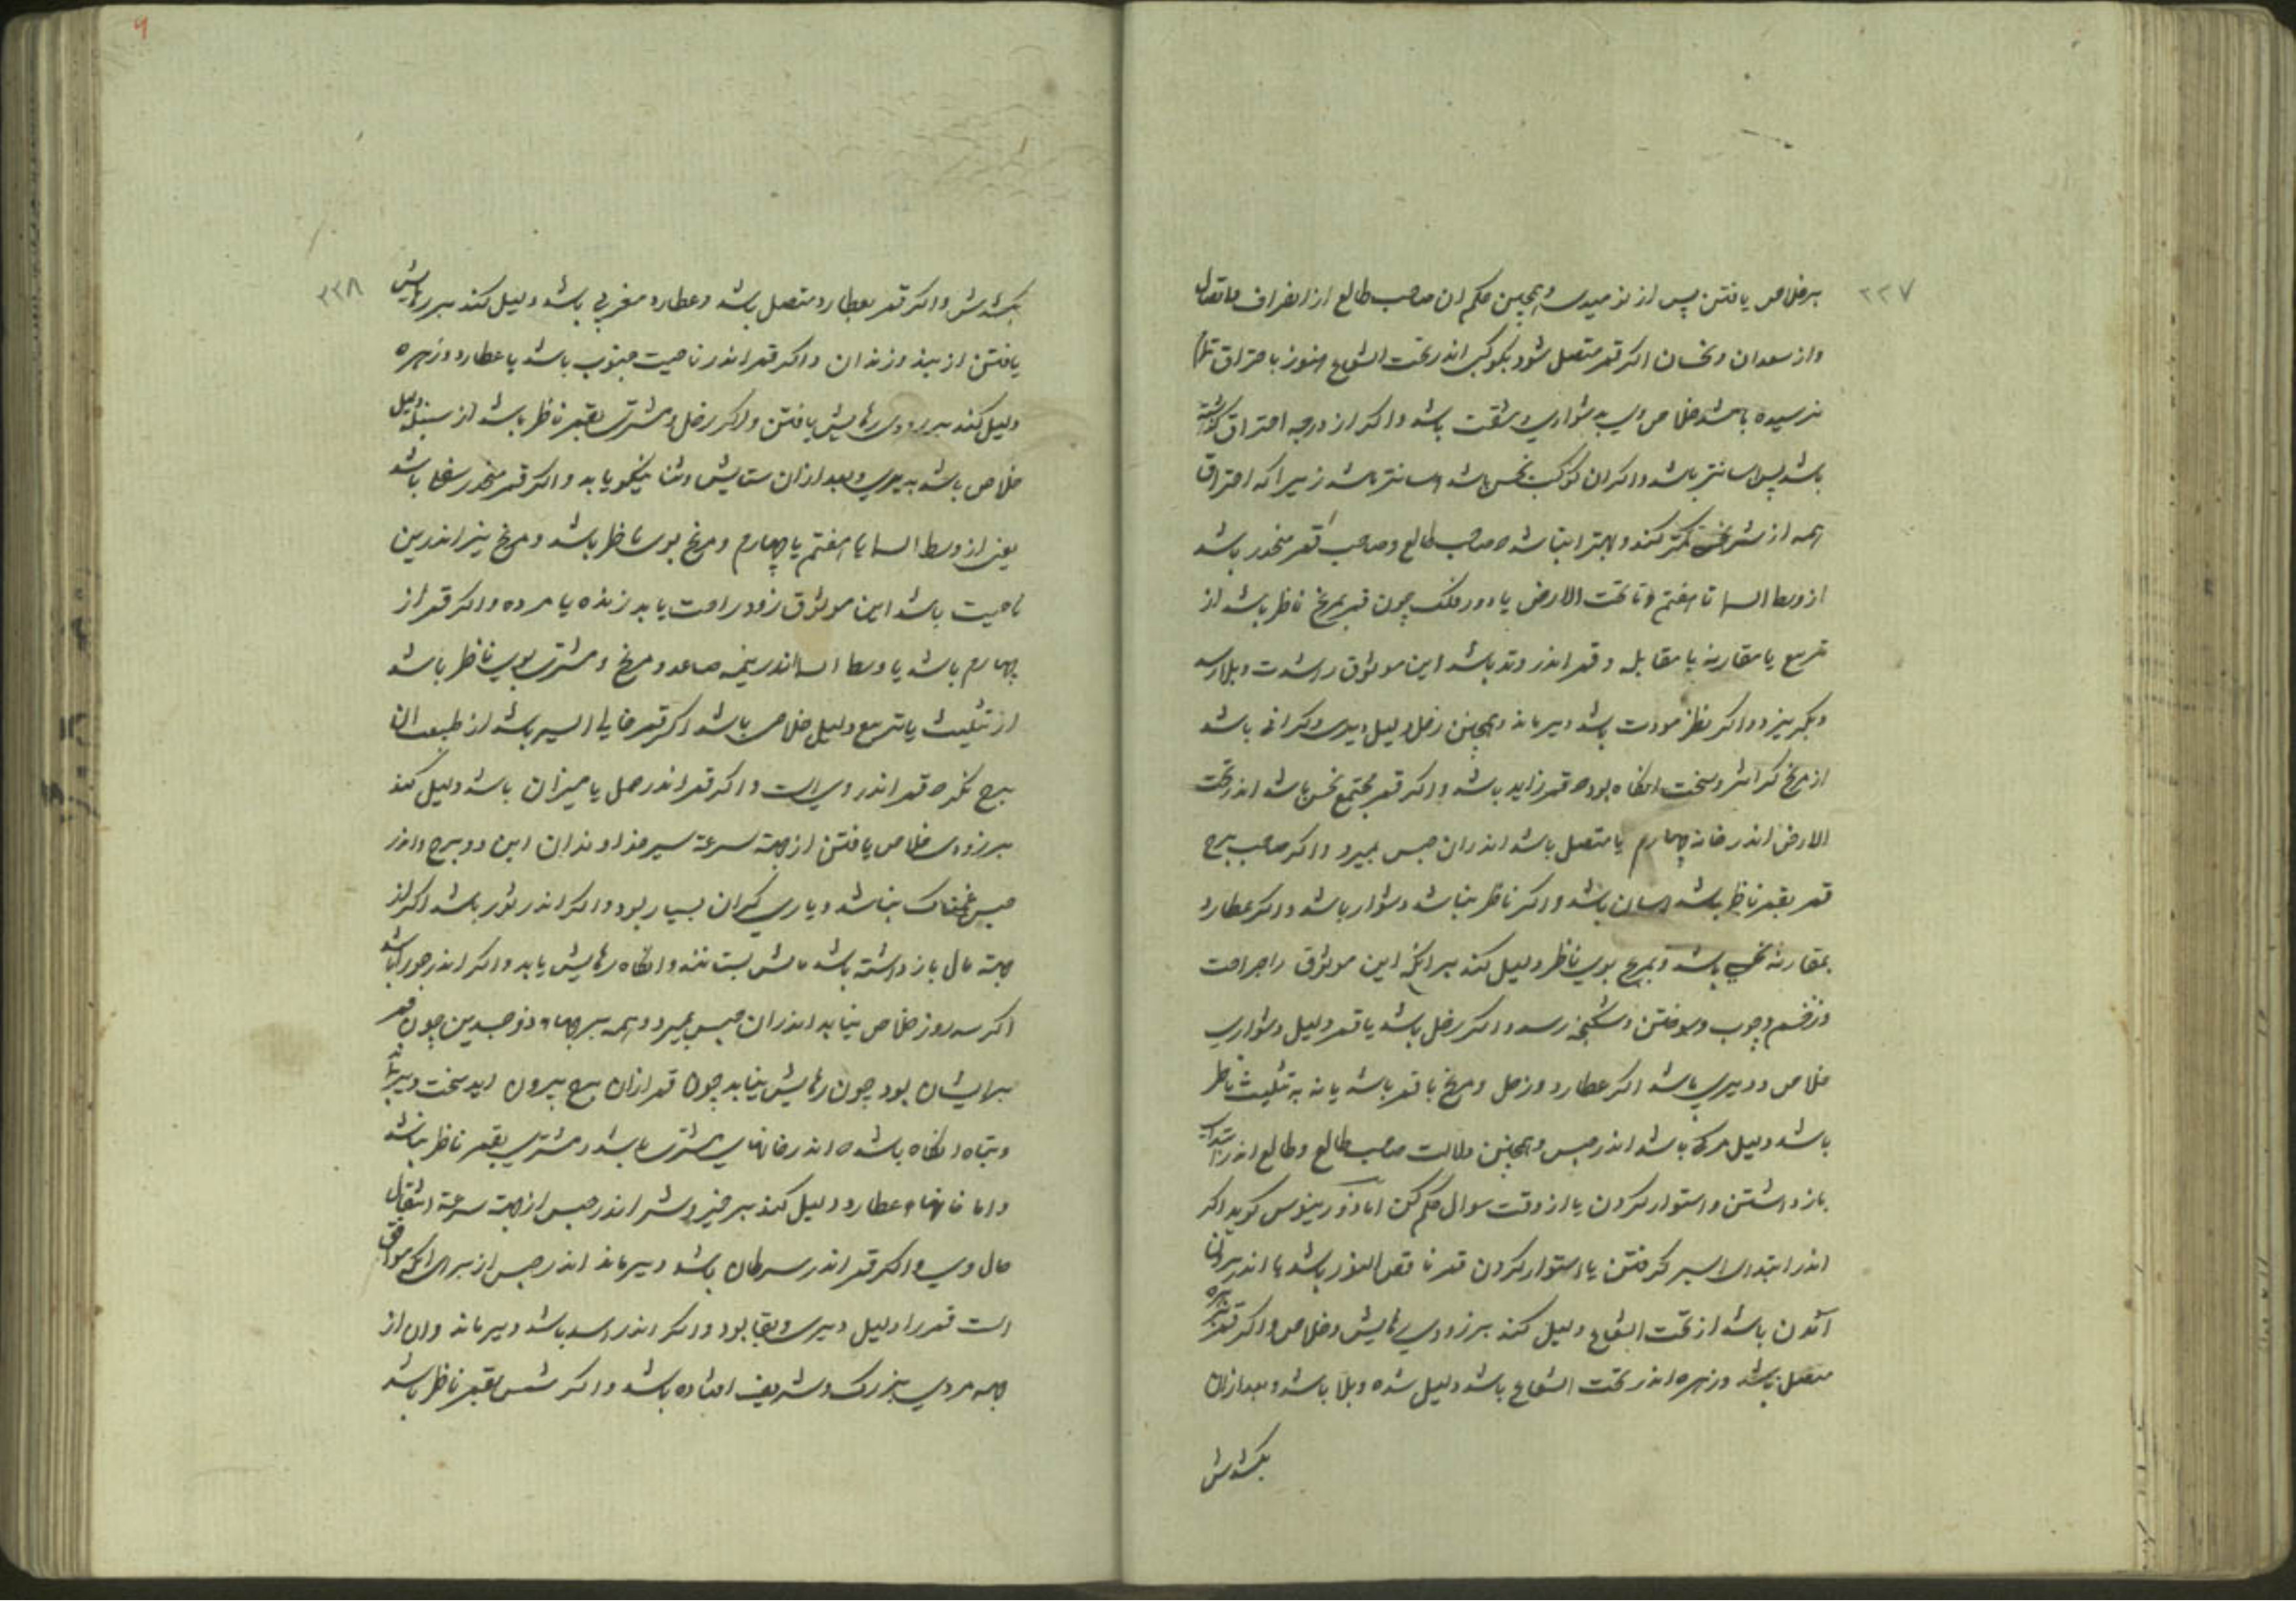 ۲۳۷
بر خلاص یافتن پس از نومیدی و همچنین حکم ان صاحب طالع از انصراف و اتصال
و از سعدان و نحسان اکر قمر متصل شود بکوکبی اندر تحت الشعاع هنوز باحتراق
نرسیده باشد خلاص وی بدشواری و مشقت باشد و اکر از درجه احتراق کذشته
باشد پس اسانتر باشد و اکر ان کوکب نحس باشد اسانتر باشد زیرا که احتراق
همه از شر نحس کمتر کند و بهتر انباشد که صاحب طالع و صاحب قمر منحدر باشد
از وسط السما تا هفتم و تا تحت الارض یا دور فلک چون قمر بمریخ ناظر باشد از
تربیع یا مقارنه یا مقابله و قمر اندر وتد باشد این موثوق را شدت و بلا رسد
و بکریزد و اکر نظر مودت باشد دیر ماند و همچنین زحل دلیل دیری و کرانی باشد
از مریخ کرانتر و سخت انکاه بود که قمر زاید باشد و اکر قمر مجتمع نحس باشد اندر تحت
الارض اندر خانه چهارم یا متصل باشد اندران حبس بمیرد و اکر صاحب برج
قمر بقمر ناظر باشد اسان باشد و اکر ناظر نباشد دشوار باشد و اکر عطارد
بمقارنه نحس باشد و مریخ بوی ناظر دلیل کند بر انکه این موثوق را جراحت
و زخم و چوب و سوختن و شکنجه رسد و اکر زحل باشد با قمر دلیل دشواری
خلاص و دیری باشد اکر عطارد و زحل و مریخ با قمر باشد یا نه به تثلیث ناظر
باشد دلیل مرک باشد اندر حبس و همچنین دلالت صاحب طالع و طالع اندر ابتدای
باز داشتن و استوار کردن یا از وقت سوال حکم کن اما ذورینوس کوید اکر
اندر ابتدای اسیر کرفتن یا استوار کردن قمر ناقص النور باشد یا اندر بیرون
آمدن باشد از تحت الشعاع دلیل کند بر زودی رهایش و خلاص و اکر قمر بزهره
متصل باشد و زهره اندر تحت الشعاع باشد دلیل شده و بلا باشد و بعد ازان
بکشدش
۲۳۸
بکشدش و اکر قمر بعطارد متصل باشد و عطارد مغربی باشد دلیل کند بر رهایش
یافتن از بند و زندان و اکر قمر اندر ناحیت جنوب باشد یا عطارد و زهره
دلیل کند بر زودی رهایش یافتن و اکر زحل و مشتری بقمر ناظر باشد از سنبله دلیل
خلاص باشد بدیری و بعد ازان ستایش و ثنا نیکو یابد و اکر قمر منحدر سفلی باشد
یعنی از وسط السما یا هفتم یا چهارم و مریخ بوی ناظر باشد و مریخ نیز اندرین
ناحیت باشد این موثوق زود راحت یابد زنده یا مرده و اکر قمر از
چهارم باشد یا وسط السما اندر نیمه صاعد و مریخ و مشتری بوی ناظر باشد
از تثلیث یا تربیع دلیل خلاص باشد اکر قمر خالی السیر باشد از طبیعت ان
برج نکر که قمر اندر وی است و اکر قمر اندر حمل یا میزان باشد دلیل کند
بر زودی خلاص یافتن از جهة سرعة سیر خداوندان این دو برج و اندر
حبس غمناک نباشد و یاری کران بسیار بود و اکر اندر ثور باشد اکر از
جهة مال باز داشته باشد مالش بستانند و انکاه رهایش یابد و اکر اندر جوزا باشد
اکر سه روز خلاص نیابد اندران حبس بمیرد و همه برجهاء ذو جسدین چون قمر
بر ایشان بود چون رهایش نیابد چون قمر ازان برج بیرون اید سخت دیر ماند
و تباه انکاه باشد که اندر خانهای مشتری باشد و مشتری بقمر ناظر نباشد
و اما خانهاء عطارد دلیل کند بر خیر و شر اندر حبس از جهة سرعة انتقال
حال وی و اکر قمر اندر سرطان باشد دیر ماند اندر حبس از برای انکه موافق
است قمر را دلیل دیری و بقا بود و اکر اندر اسد باشد دیر ماند و ان از
جهة مردی بزرک و شریف افتاده باشد و اکر شمس بقمر ناظر باشد